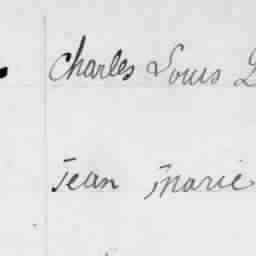 Charles Louis
Jean Marie